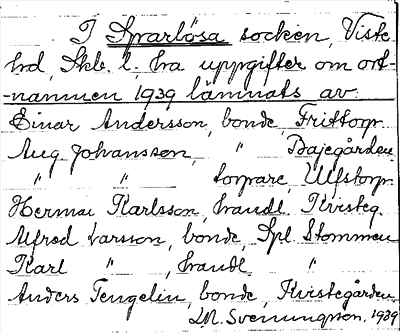 I Sparlösa socken, Viste
hd, Skb. l. ha uppgifter om ort-
namnen 1939 lämnats av.
Einar Andersson, bonde, Frittorp
Aug. Johansson, " Bajegården
" " torpare, Ulfstorp
Herman Karlsson, handl. Kvisteg.
Alfred Larsson, bonde, Spl. Stommen
Karl " , handl. "
Anders Tengelin, bonde, Kvistegården
M. Svenungson. 1939